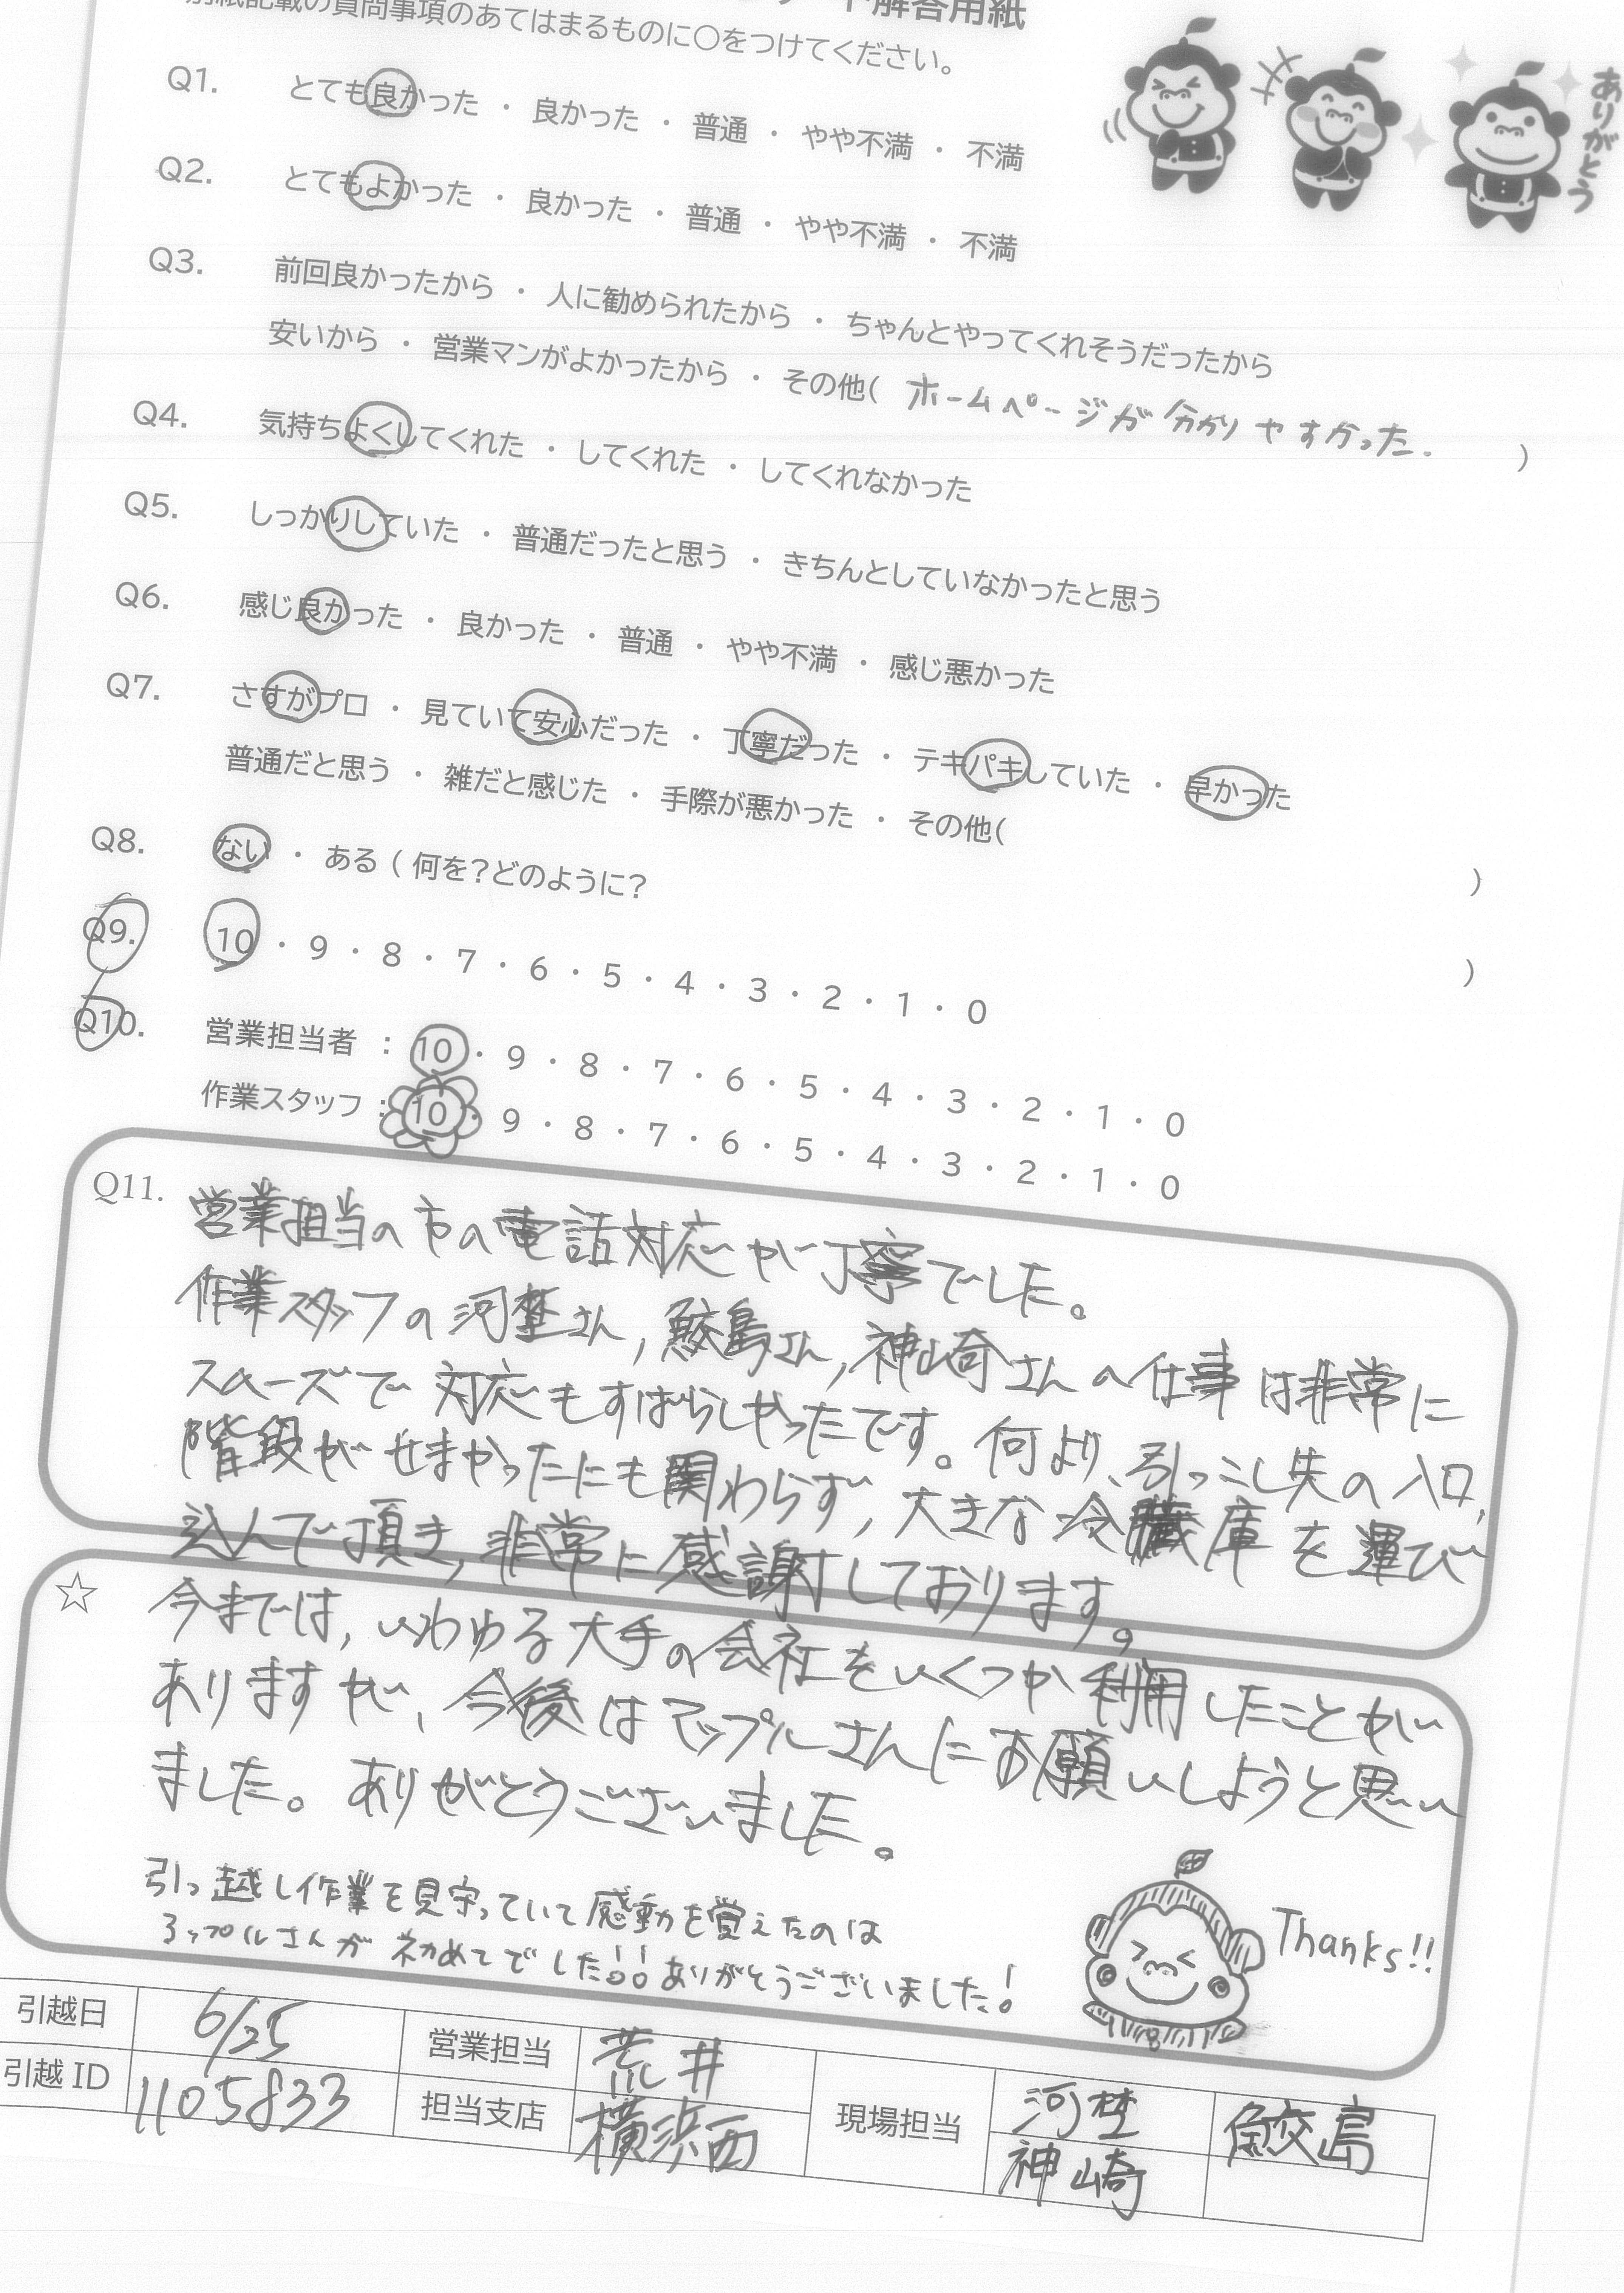 ト解答用紙
別紙記載の質問事項のあてはまるものに○をつけてください。
ありがとう
Q1. とても良かった ・ 良かった ・ 普通 ・ やや不満 ・ 不満
Q2. とてもよかった ・ 良かった ・ 普通 ・ やや不満 ・ 不満
Q3. 前回良かったから ・ 人に勧められたから ・ ちゃんとやってくれそうだったから
安いから ・ 営業マンがよかったから ・ その他( ホームページが分かりやすかった. )
Q4. 気持ちよくしてくれた ・ してくれた ・ してくれなかった
Q5. しっかりしていた ・ 普通だったと思う ・ きちんとしていなかったと思う
Q6. 感じ良かった ・ 良かった ・ 普通 ・ やや不満 ・ 感じ悪かった
Q7. さすがプロ ・ 見ていて安心だった ・ 丁寧だった ・ テキパキしていた ・ 早かった
普通だと思う ・ 雑だと感じた ・ 手際が悪かった ・ その他( )
Q8. ない ・ ある ( 何を?どのように? )
Q9. 10 ・ 9 ・ 8 ・ 7 ・ 6 ・ 5 ・ 4 ・ 3 ・ 2 ・ 1 ・ 0
Q10. 営業担当者 : 10 ・ 9 ・ 8 ・ 7 ・ 6 ・ 5 ・ 4 ・ 3 ・ 2 ・ 1 ・ 0
作業スタッフ : 10 ・ 9 ・ 8 ・ 7 ・ 6 ・ 5 ・ 4 ・ 3 ・ 2 ・ 1 ・ 0
Q11. 営業担当の方の電話対応が丁寧でした。
作業スタッフの河埜さん,鮫島さん,神崎さんの仕事は非常に
スムーズで対応もすばらしかったです。何より、引っこし先の入口,
階段がせまかったにも関わらず,大きな冷蔵庫を運び
込んで頂き,非常に感謝しております。
☆ 今までは,いわゆる大手の会社をいくつか利用したことが
ありますが、今後はアップルさんにお願いしようと思い
ました。ありがとうございました。
引っ越し作業を見守っていて感動を覚えたのは
アップルさんが初めてでした!!ありがとうございました!
Thanks!!
引越日 6/25 営業担当 荒井 現場担当 河埜 鮫島
引越ID 1105833 担当支店 横浜西 神崎